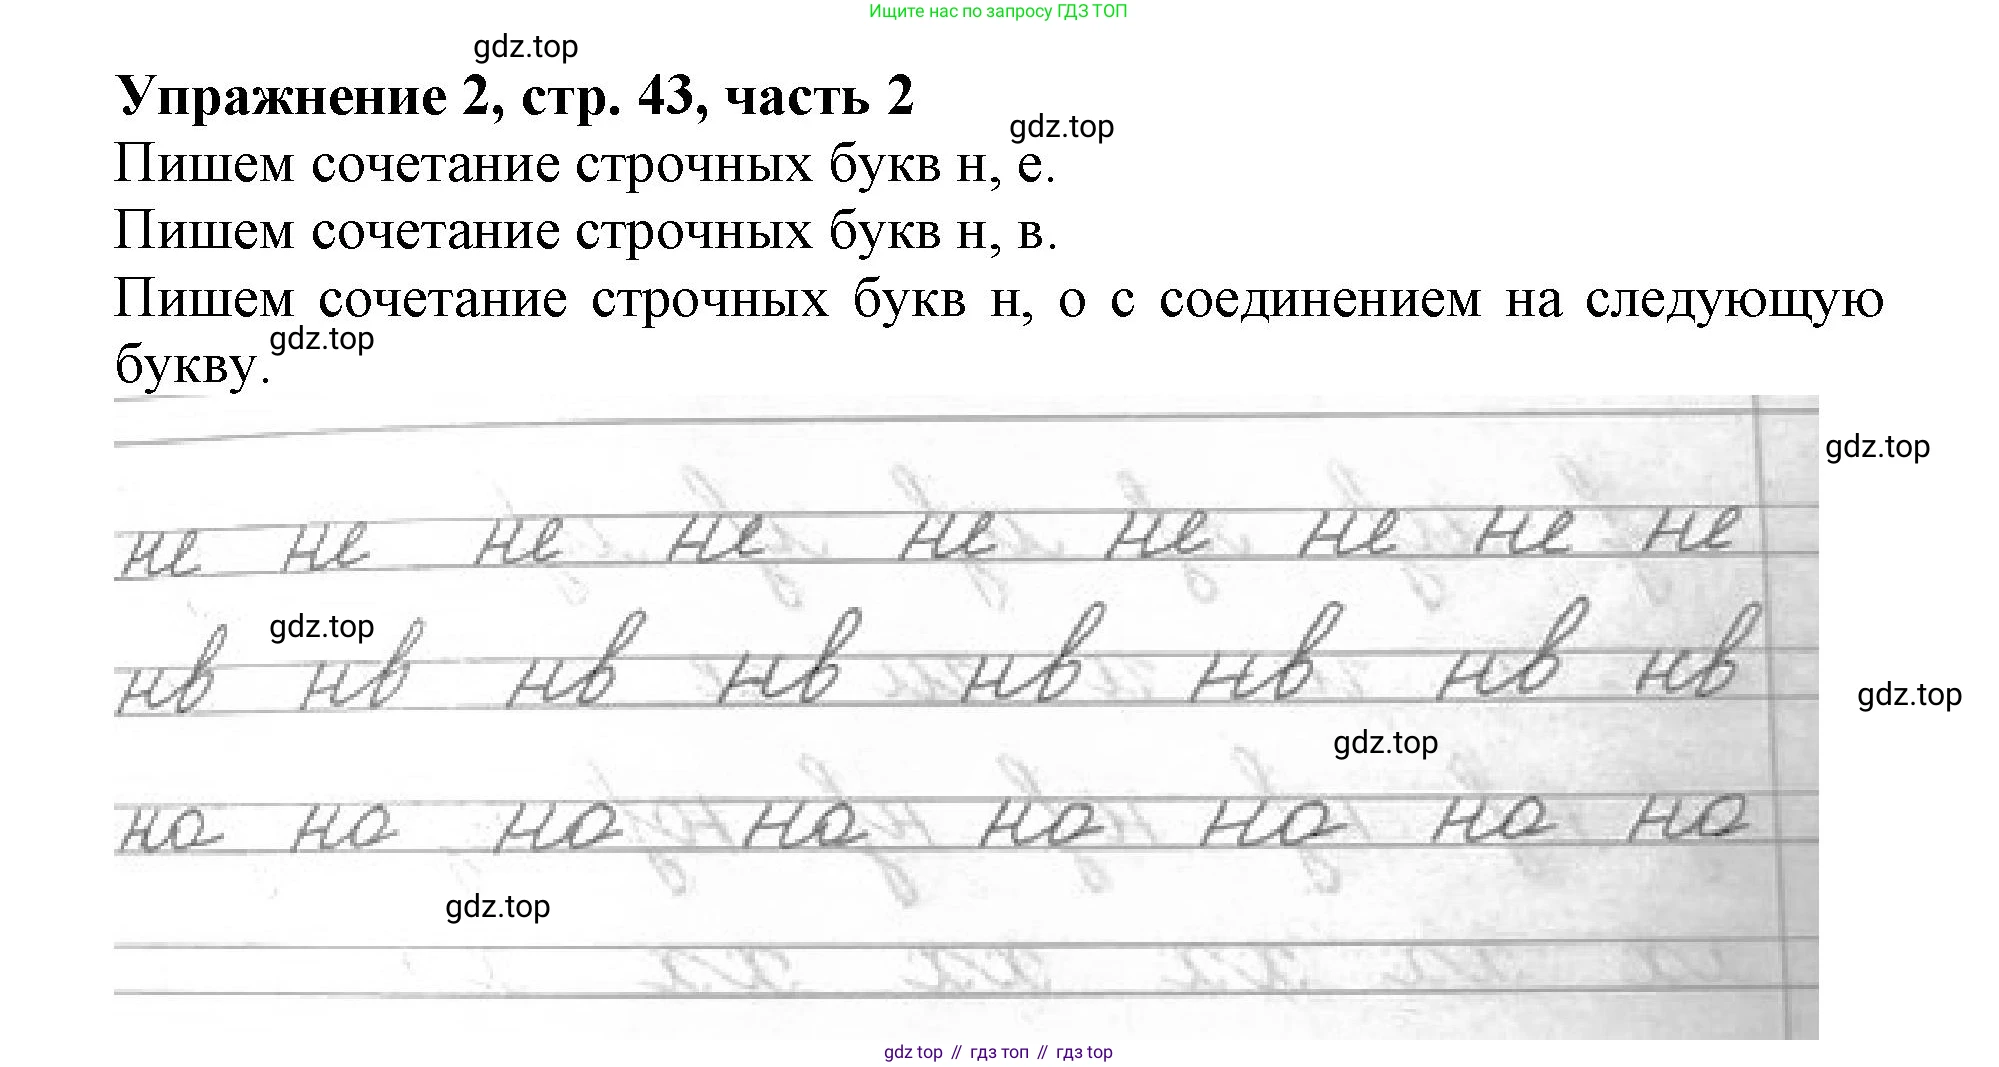 Ищите нас по запросу ГДЗ ТОП
gdz.top
Упражнение 2, стр. 43, часть 2
gdz.top
Пишем сочетание строчных букв н, е.
Пишем сочетание строчных букв н, в.
Пишем сочетание строчных букв н, о с соединением на следующую
gdz.top
букву.
gdz.top
не не не не не не не не не
gdz.top
нв нв нв нв нв нв нв нв
gdz.top
gdz.top
но но но но но но но но
gdz.top
gdz top // гдз топ // гдз top